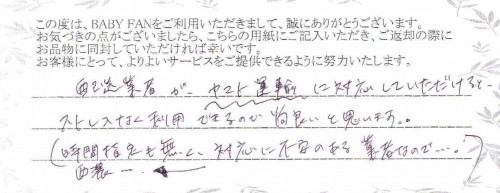 この度は、BABY FANをご利用いただきまして、誠にありがとうございます。
お気づきの点がございましたら、こちらの用紙にご記入いただき、ご返却の際に
お品物に同封していただければ幸いです。
お客様にとって、よりよいサービスをご提供できるように努力いたします。
配送業者が、ヤマト運輸に対応していただけると、
ストレスなく利用できるので尚良いと思います。
(時間指定も無く、対応に不安のある業者なので…。)
西濃…